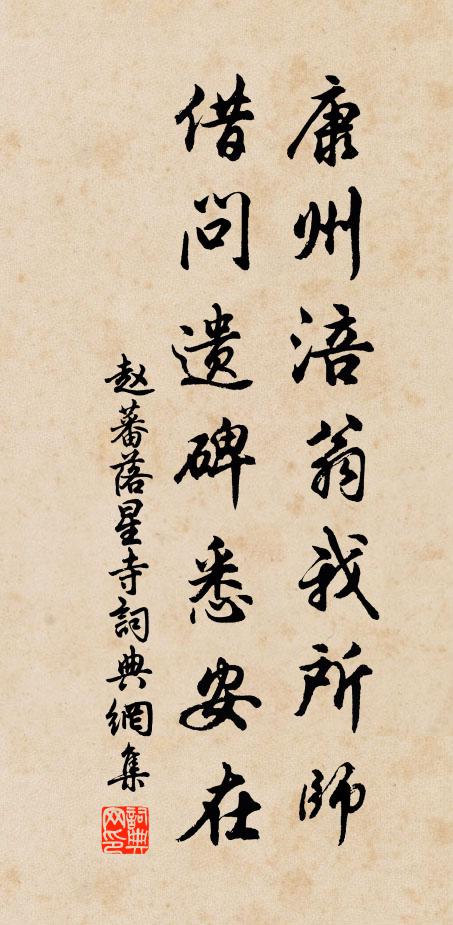 康州涪翁我所师
借问遗碑悉安在
赵蕃落星寺詞典網集
詞典网印